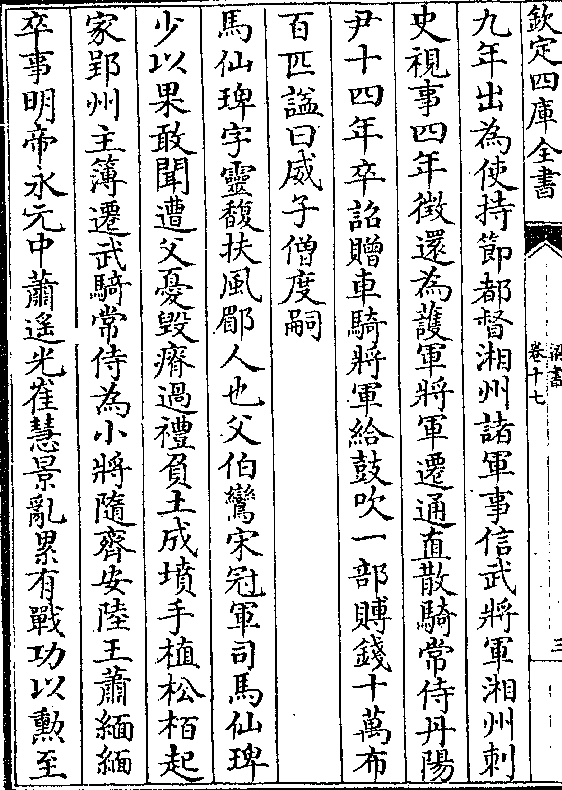 欽定四庫全書
梁書
卷十七
三
九年出為使持節都督湘州諸軍事信武將軍湘州刺
史視事四年徵還為護軍將軍遷通直散騎常侍丹陽
尹十四年卒詔贈車騎將軍給鼓吹一部賻錢十萬布
百匹諡曰威子僧度嗣
馬仙琕字靈馥扶風郿人也父伯鸞宋冠軍司馬仙琕
少以果敢聞遭父憂毀瘠過禮負土成墳手植松栢起
家郢州主簿遷武騎常侍為小將隨齊安陸王蕭緬緬
卒事明帝永元中蕭遙光崔慧景亂累有戰功以勲至